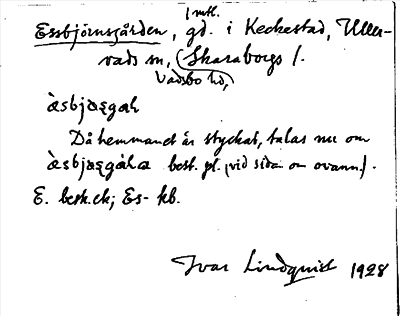 mtl.
Essbjörnsgården, gd. i Keckestad, Uller-
vads sn, Skaraborgs l.
Vadsbo hd,
Då hemmanet är styckat, talas nu om
best. pl. (vid sidan om ovann.).
E. besk.ck; Es- kb.
Ivar Lindquist 1928